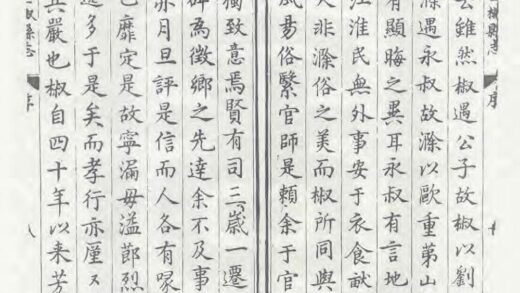 椒縣志 序 十
云雖然椒遇公子故椒以劉
滁遇永叔故滁以歐重第山
有顯晦之異耳永叔有言地
江淮民無外事安于衣食畎
非滁俗之美而椒所同與
風易俗繫官師是賴余于官
獨致意焉賢有司三歲一遷
碑為徵鄉之先達余不及事
亦月旦評是信而人各有喙
靡定是故寧漏毋溢節烈
多于是矣而孝行亦厪〻
其嚴也椒自四十年以来芳
椒縣志 序 八